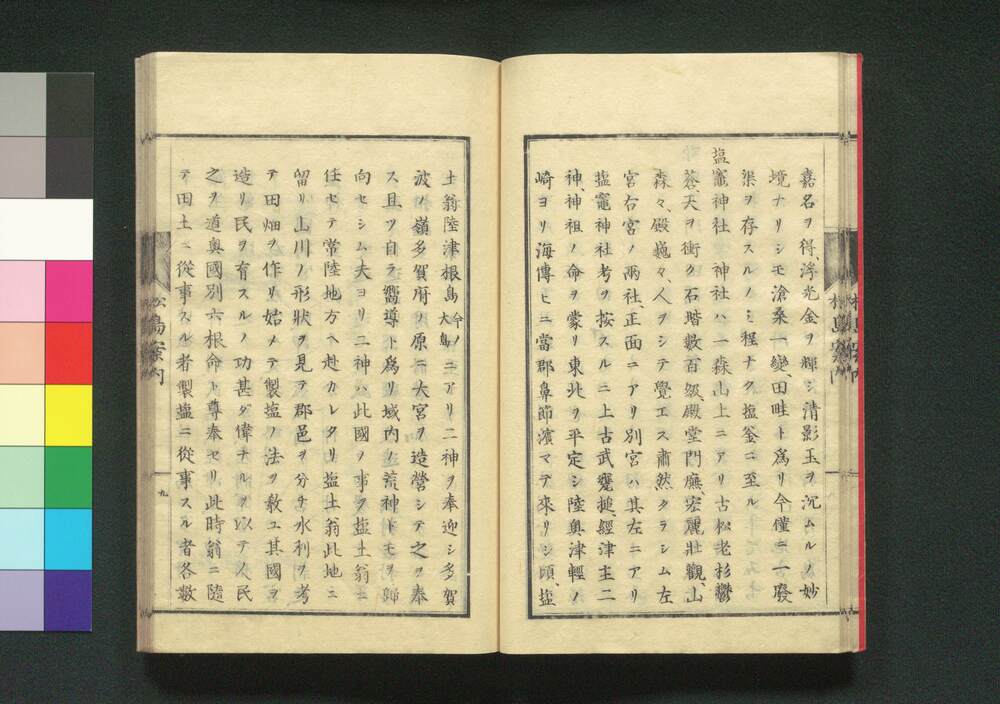 嘉名ヲ得、浮光金ヲ輝シ清影玉ヲ沉ムルノ妙
境ナリシモ滄桑一變、田畦ト爲リ今僅ニ一廢
渠ヲ存スルノミ程ナク塩釜ニ至ル
塩竈神社 神社ハ一森山上ニアリ古松老杉鬱
蒼、天ヲ衝ク石階數百級、殿堂門廡、宏麗壯觀、山
森々、殿巍々、人ヲシテ覺エス肅然タラシム左
宮右宮ノ兩社、正面ニアリ別宮ハ其左ニアリ
塩竈神社考ヲ按スルニ上古武甕槌、經津主二
神、神祖ノ命ヲ蒙リ東北ヲ平定シ陸奥津輕ノ
崎ヨリ海傳ヒニ當郡鼻節濱マテ來リシ頃、塩
土翁陸津根島今ノ大島ニアリ二神ヲ奉迎シ多賀
波ノ嶺多賀府ノ原ニ大宮ヲ造營シテ之ヲ奉
ス且ツ自ラ嚮導ト爲リ域内ノ荒神ドモヲ歸
向セシム夫ヨリ二神ハ此國ノ事ヲ塩土翁ニ
任セテ常陸地方ヘ赴カレタリ塩土翁此地ニ
留リ山川ノ形狀ヲ見テ郡邑ヲ分チ水利ヲ考
テ田畑ヲ作リ始メテ製塩ノ法ヲ敎ユ其國ヲ
造リ民ヲ有スルノ功甚ダ偉ナルヲ以テ人民
之ヲ道奥國別六根命ト尊奉セリ此時翁ニ隨
テ田土ニ從事スル者製塩ニ從事スル者各數
松島案内
九
松島案内